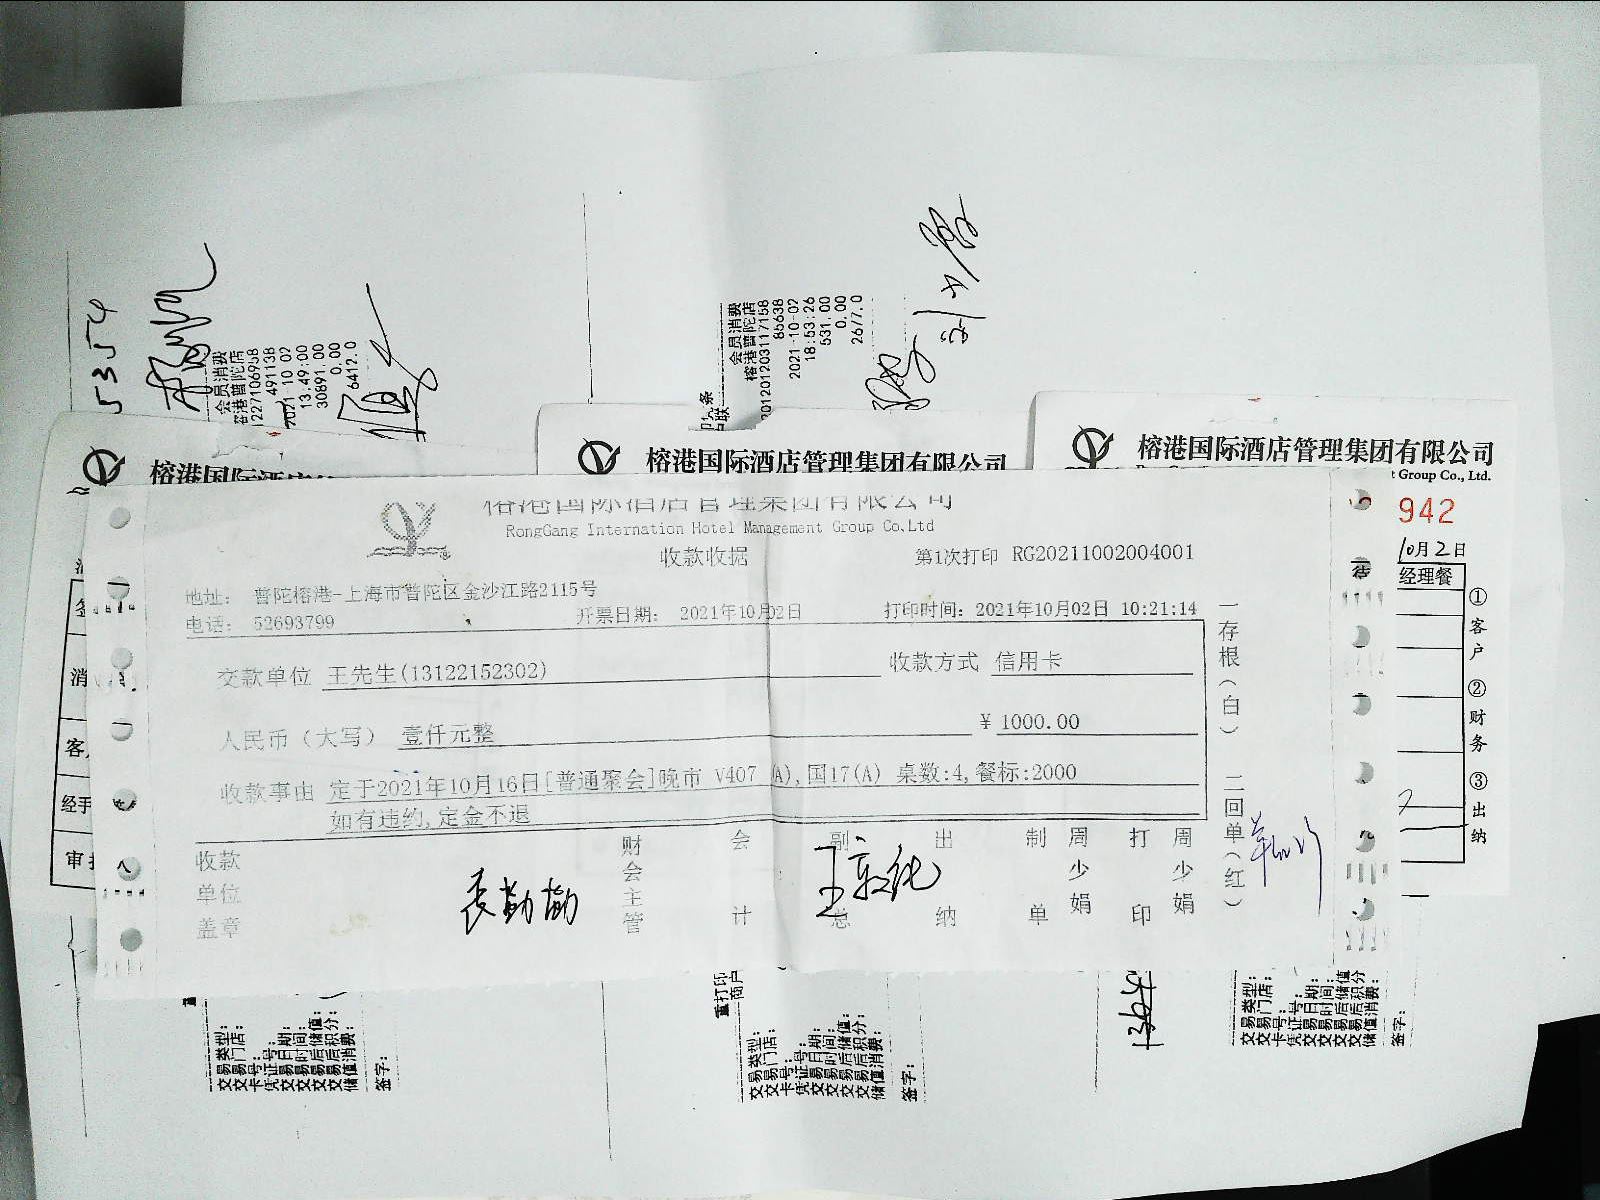 53554
会员消费
榕港普陀店
1227106958
491138
2021 10 02
13:49:00
30891.00
0.00
6412.0
会员消费
榕港普陀店
2012012031117158
85638
2021-10-02
18:53:26
531.00
0.00
2677.0
榕港国际酒店管理集团有限公司
榕港国际酒店管理集团有限公司
榕港国际酒店管理集团有限公司
t Group Co., Ltd.
942
10月2日
经理餐
①客户 ②财务 ③出纳
榕港国际酒店管理集团有限公司
RongGang Internation Hotel Management Group Co.Ltd
收款收据
第1次打印 RG20211002004001
地址: 普陀榕港-上海市普陀区金沙江路2115号
电话: 52693799
开票日期: 2021年10月02日
打印时间: 2021年10月02日 10:21:14
交款单位 王先生(13122152302)
收款方式 信用卡
人民币(大写) 壹仟元整
¥ 1000.00
收款事由 定于2021年10月16日[普通聚会]晚市 V407 (A),国17(A) 桌数:4,餐标:2000
如有违约,定金不退
一存根(白) 二回单(红)
收款单位盖章
财会主管
会计
副总
出纳
制单
周少娟
打印
周少娟
消
客
经手
审
交易类型:
交易门店:
卡号:
凭证号:
交易日期:
交易时间:
交易后储值:
交易后积分:
储值消费:
签字:
重打印
商户
交易类型:
交易门店:
卡号:
凭证号:
交易日期:
交易时间:
交易后储值:
交易后积分:
储值消费:
签字:
交易类型:
交易门店:
卡号:
凭证号:
交易日期:
交易时间:
交易后储值
交易后积分
储值消费:
签字: